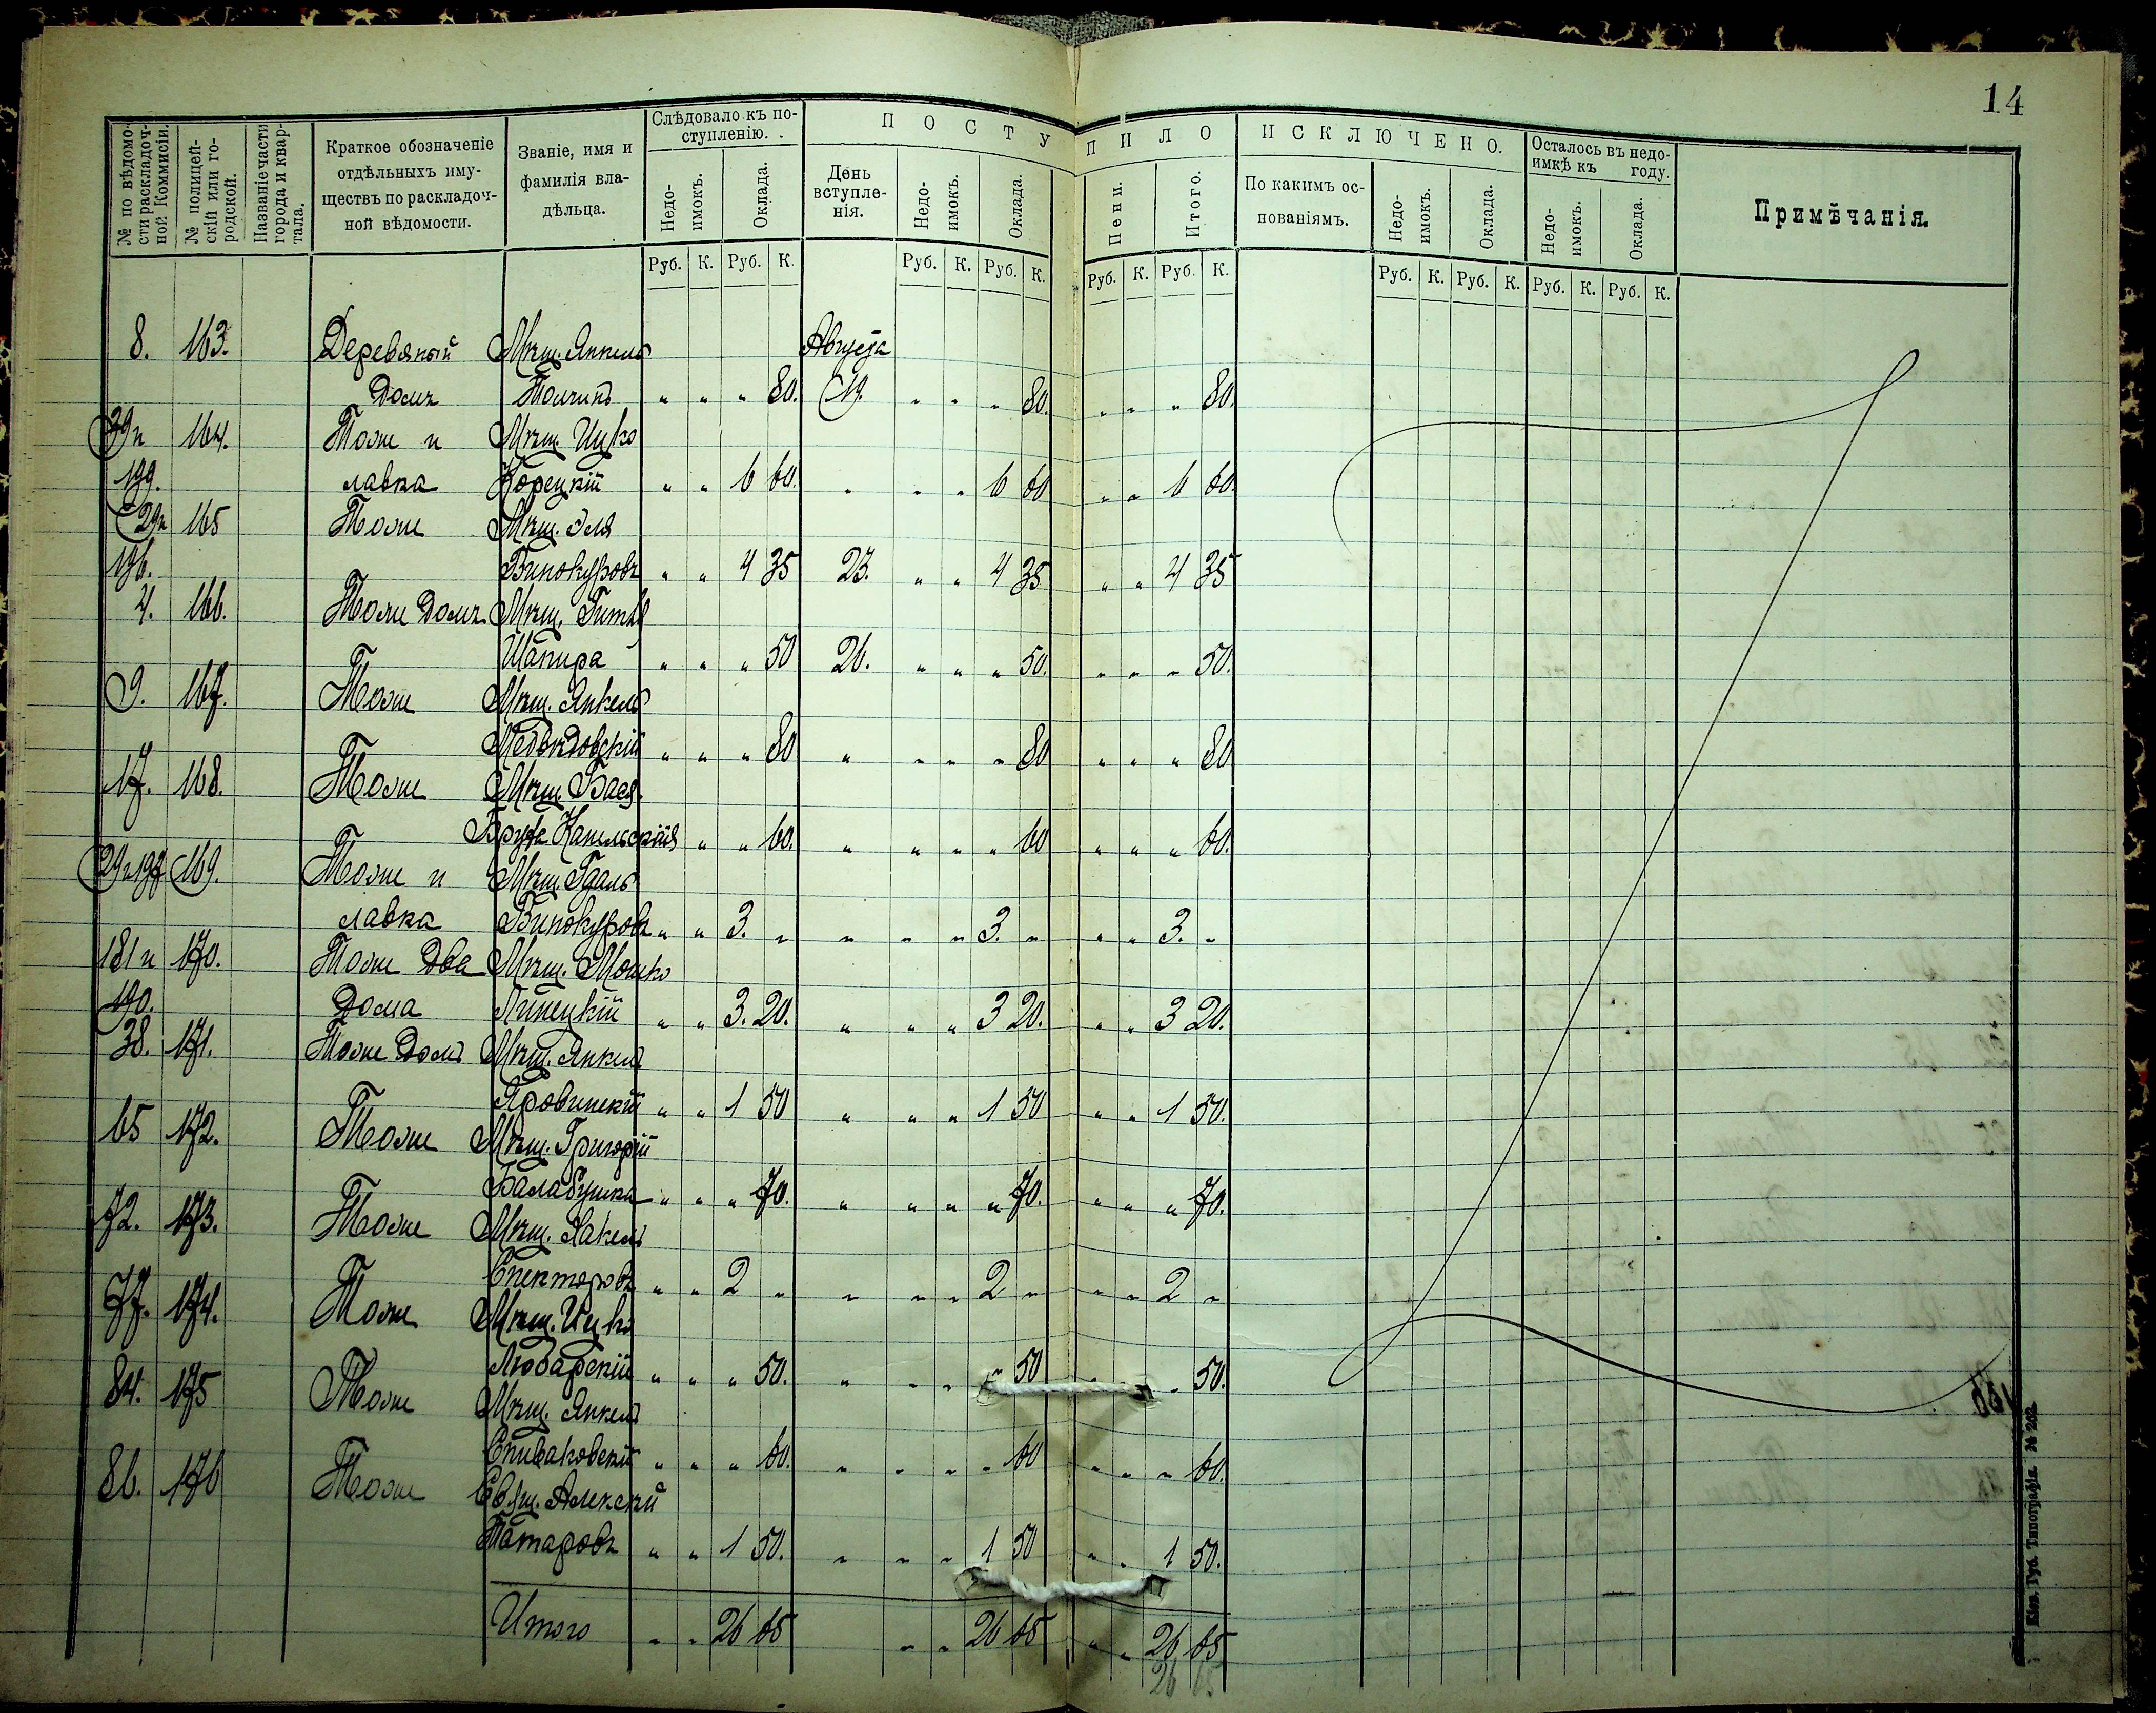 14
№ по вѣдомости раскладочной Коммисіи.
№ полицейскій или городской.
Названіе части города и квартала.
Краткое обозначеніе отдѣльныхъ имуществъ по раскладочной вѣдомости.
Званіе, имя и фамилія владѣльца.
Слѣдовало къ поступленію.
Недоимокъ. Оклада.
ПОСТУПИЛО
День вступленія. Недоимокъ. Оклада. Пени. Итого.
ИСКЛЮЧЕНО.
По какимъ основаніямъ. Недоимокъ. Оклада.
Осталось въ недоимкѣ къ году.
Недоимокъ. Оклада.
Примѣчанія.
Руб. К. Руб. К. Руб. К. Руб. К. Руб. К. Руб. К. Руб. К. Руб. К. Руб. К. Руб. К.
8. 163. Деревяный Мѣщ. Янкель Августа
домъ " " " 80. 19. " " " 80. " " " 80.
29 и 164. Тоже и Мѣщ. Ицко
199. лавка Корецкій " " 6 60. " " " 6 60 " " 6 60.
29 и 165 Тоже Мѣщ. Эля
196. Винокуровъ " " 4 35 23. " " 4 35 " " 4 35
4. 166. Тоже домъ Мѣщ. Гитля
Шапира " " " 50 26. " " " 50. " " " 50.
9. 167. Тоже Мѣщ. Янкель
Медвѣдовскій " " " 80 " " " " 80 " " " 80
17. 168. Тоже Мѣщ. Бася
" " 60. " " " " 60 " " " 60.
29 и 197 169. Тоже и Мѣщ. Гдаль
лавка Винокуровъ " " 3. " " " " 3. " " " 3. "
181 и 170. Тоже два Мѣщ. Мошко
190. дома Липецкій " " 3. 20. " " " 3 20. " " 3 20.
38. 171. Тоже домъ Мѣщ. Янкель
Яровинскій " " 1 50 " " " 1 50 " " 1 50.
65 172. Тоже Мѣщ. Григорій
Балабушка " " " 70. " " " " 70. " " " 70.
72. 173. Тоже Мѣщ.
Спекторовъ " " 2 " " " " 2 " " " 2 "
77. 174. Тоже Мѣщ. Ицко
Любарскій " " " 50. " " " " 50 " " 50.
84. 175 Тоже Мѣщ. Янкель
Спиваковскій " " " 60. " " " " 60 " " " 60.
86. 176 Тоже Свящ. Алексѣй
Татаровъ " " 1 50. " " " 1 50 " " 1 50.
Итого " " 26 65 " " 26 65 " " 26 65
26 65
Кіев. Губ. Типографія. № 202